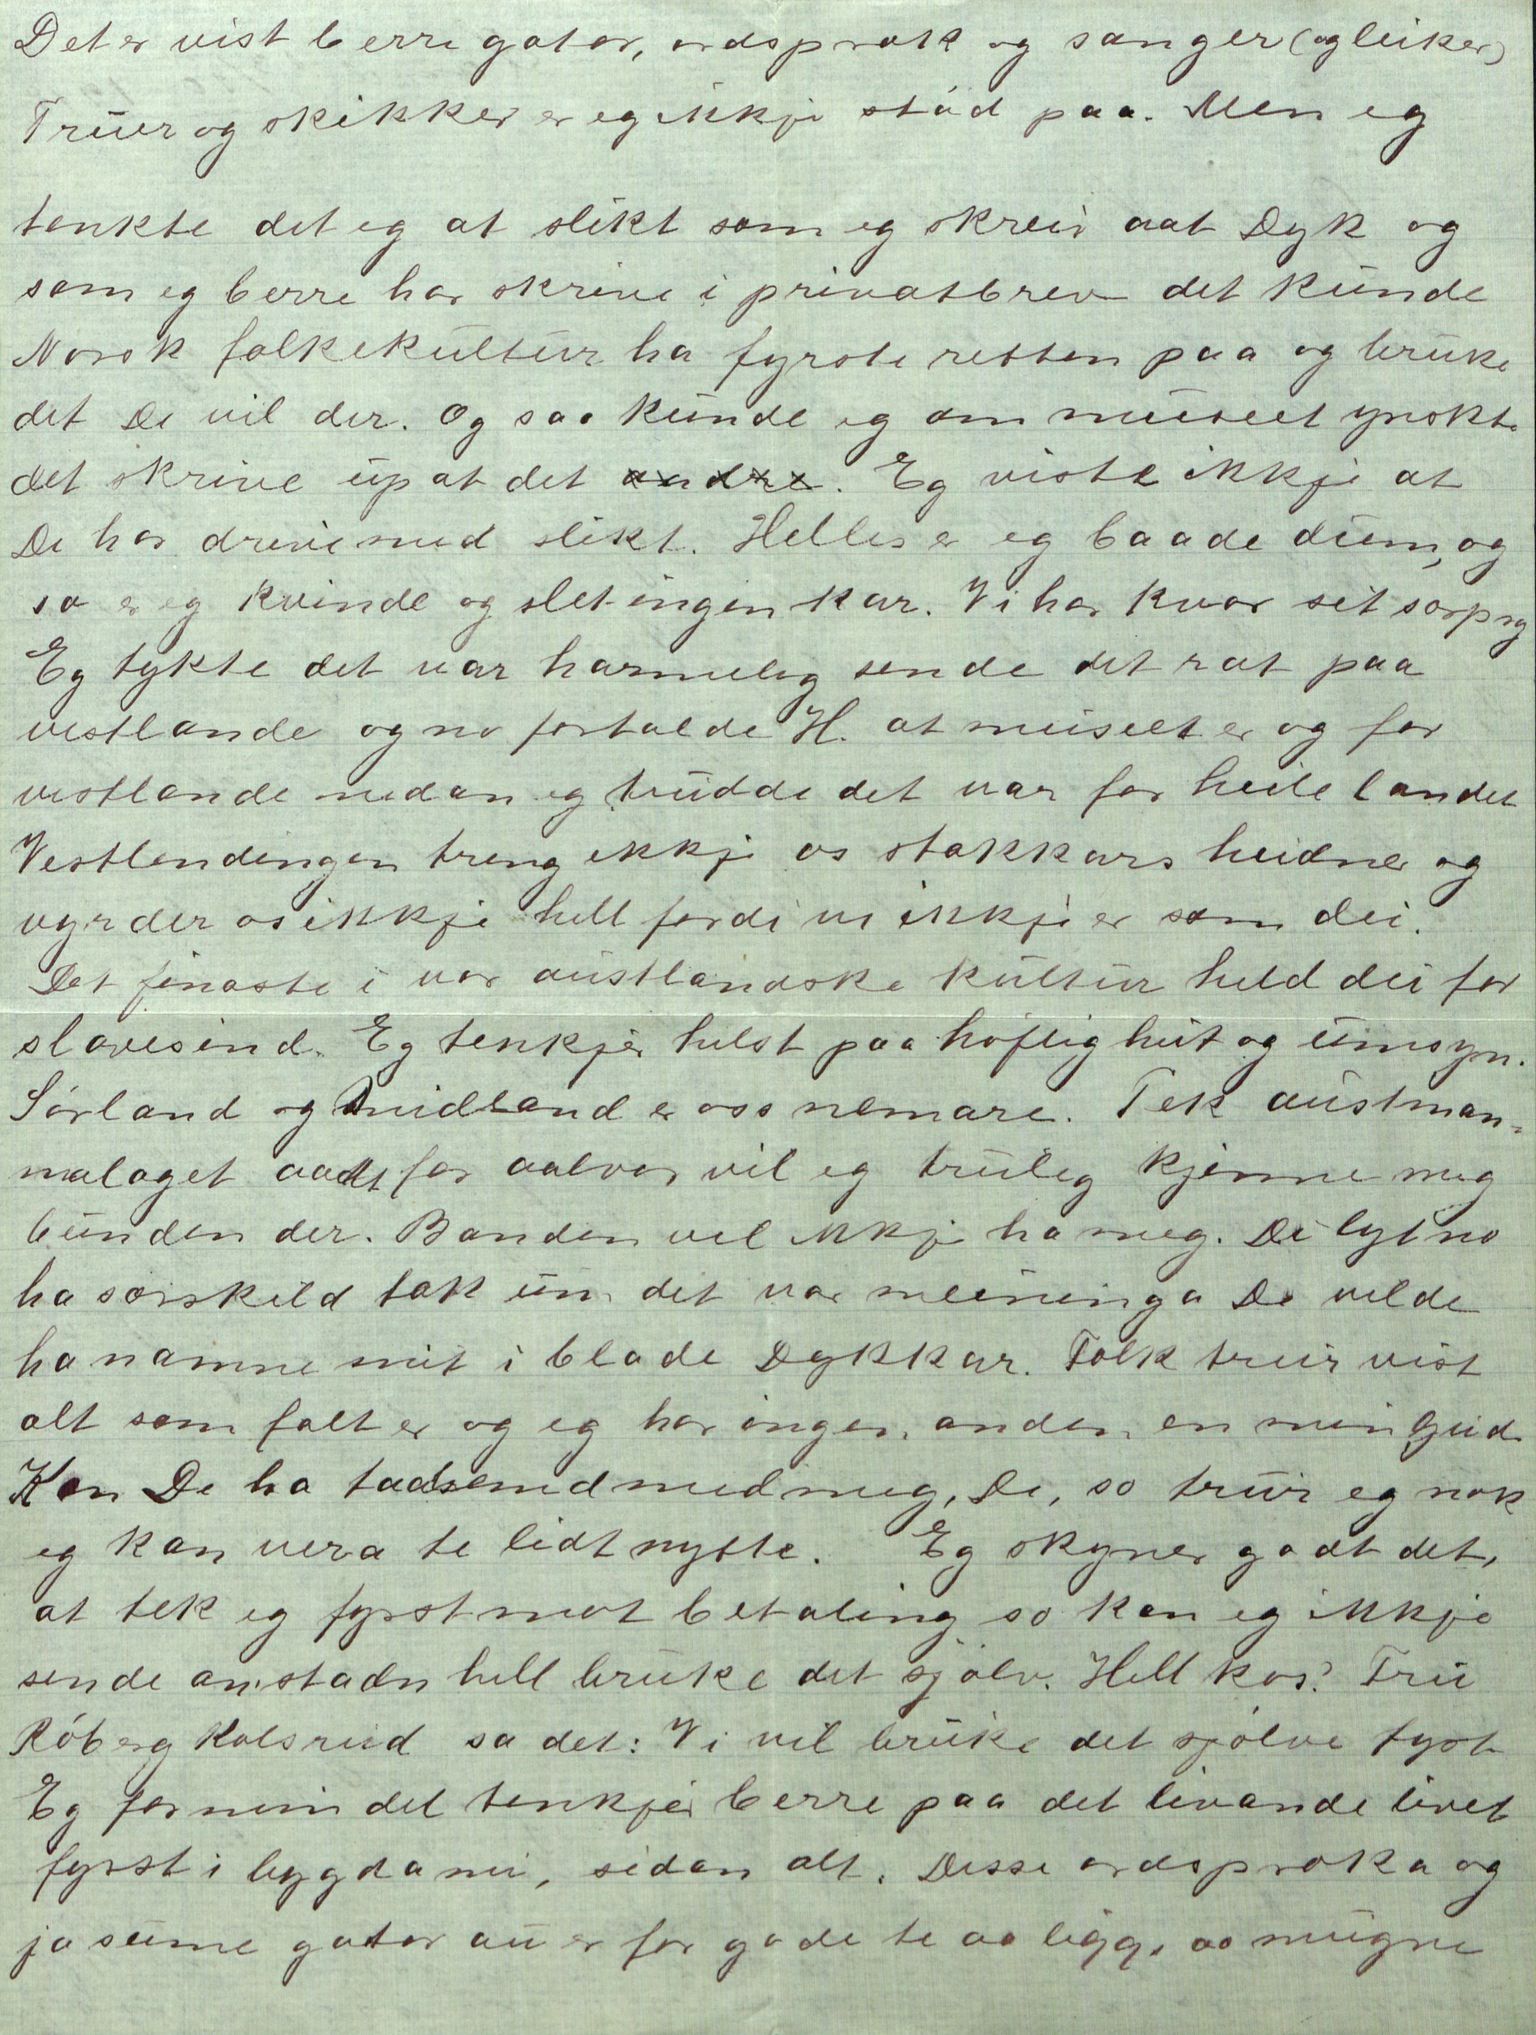 Det er vist berre gator, ordsprok og sanger (og leiker)
Truer og skikker er eg ikkje stád paa. Men eg
tenkte det eg at slikt som eg skreiv aat Dyk og
som eg berre har skrive i privatbrev det kunde
Norsk folkekultur ha fyrste retten paa og bruke
det De vil der. Og saa kunde eg om museet ynskte
det skrive up at det andre. Eg viste ikkje at
De har drive med slikt. Helles er eg baade dum, og
so er eg kvinde og slet ingen kar. Vi har kvar sit særpreg
Eg tykte det var harmeleg sende det rat paa
vestlande og no fortalde H. at museet er og for
vestlande medan eg trudde det var for heile landet
Vestlendingen treng ikkje os stakkars heidner og
vyrder os ikkje hell fordi vi ikkje er som dei.
Det finaste i vor austlandske kultur held dei for
slavesind. Eg tenkjer helst paa høflighet og umsyn.
Sørland og midland er oss nemare. Tek austman-
malaget aat for aalvor vil eg truleg kjenne meg
bunden der. Banden vil ikkje ha meg. De lyt no
ha særskild tak um det var meininga De vilde
ha namne mit i blade Dykkar. Folk trur vist
alt som falt er og eg har ingen anden en min Gud.
Kan De ha taalsemd med meg, De, so trur eg nok
eg kan vera te lidt nytte. Eg skyner godt det,
at tek eg fyrst mot betaling so kan eg ikkje
sende anstadn hell bruke det sjølv. Hell kos? Fru
Róberg Kolsrud sa det: Vi vil bruke det sjølve fyst
Eg for min del tenkjer berre paa det livande livet
fyrst i bygda mi, sidan alt. Disse ordsproka og
ja sume gator au er for gode te aa ligge aa mugne